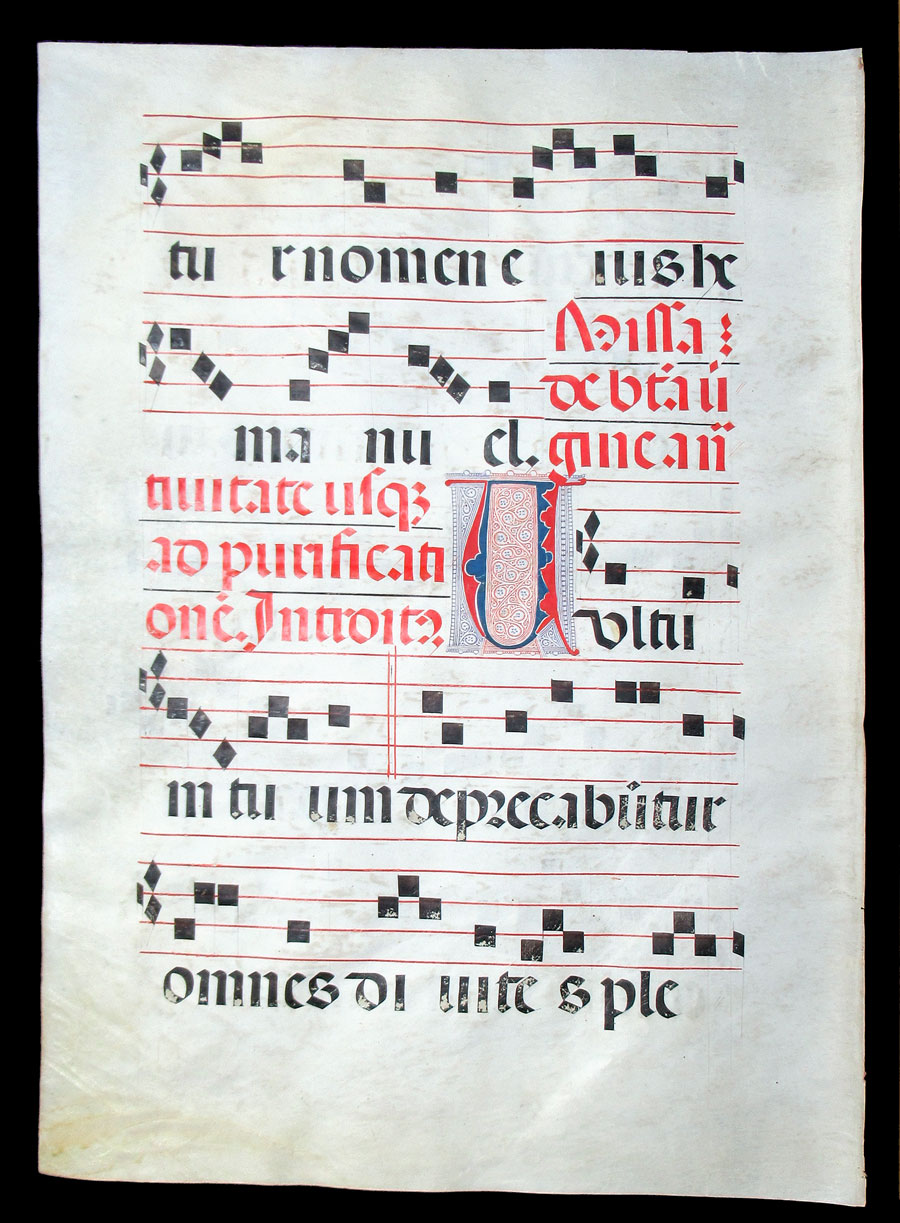 tu r nomen e ius hε
Missa
de bt̄a ui
ma nu el. gine a n̄
tiuitate usq3
ad purificati
onē. Introitꝰ
U vltu
m tu um deprecabūtur
omnes di uite s ple